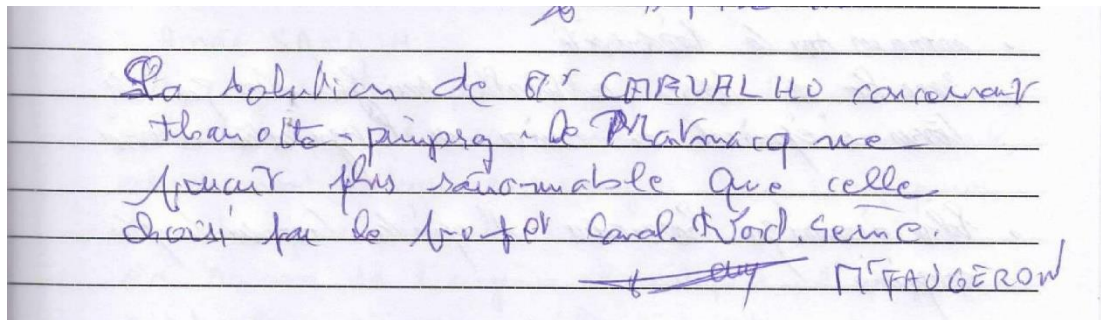 La solution de Mr CARVALHO concernant
Thourotte - pimprez - le Plessis
paraît plus raisonnable que celle
choisi par le projet Canal. Nord. Seine.
Mr FAUGERON